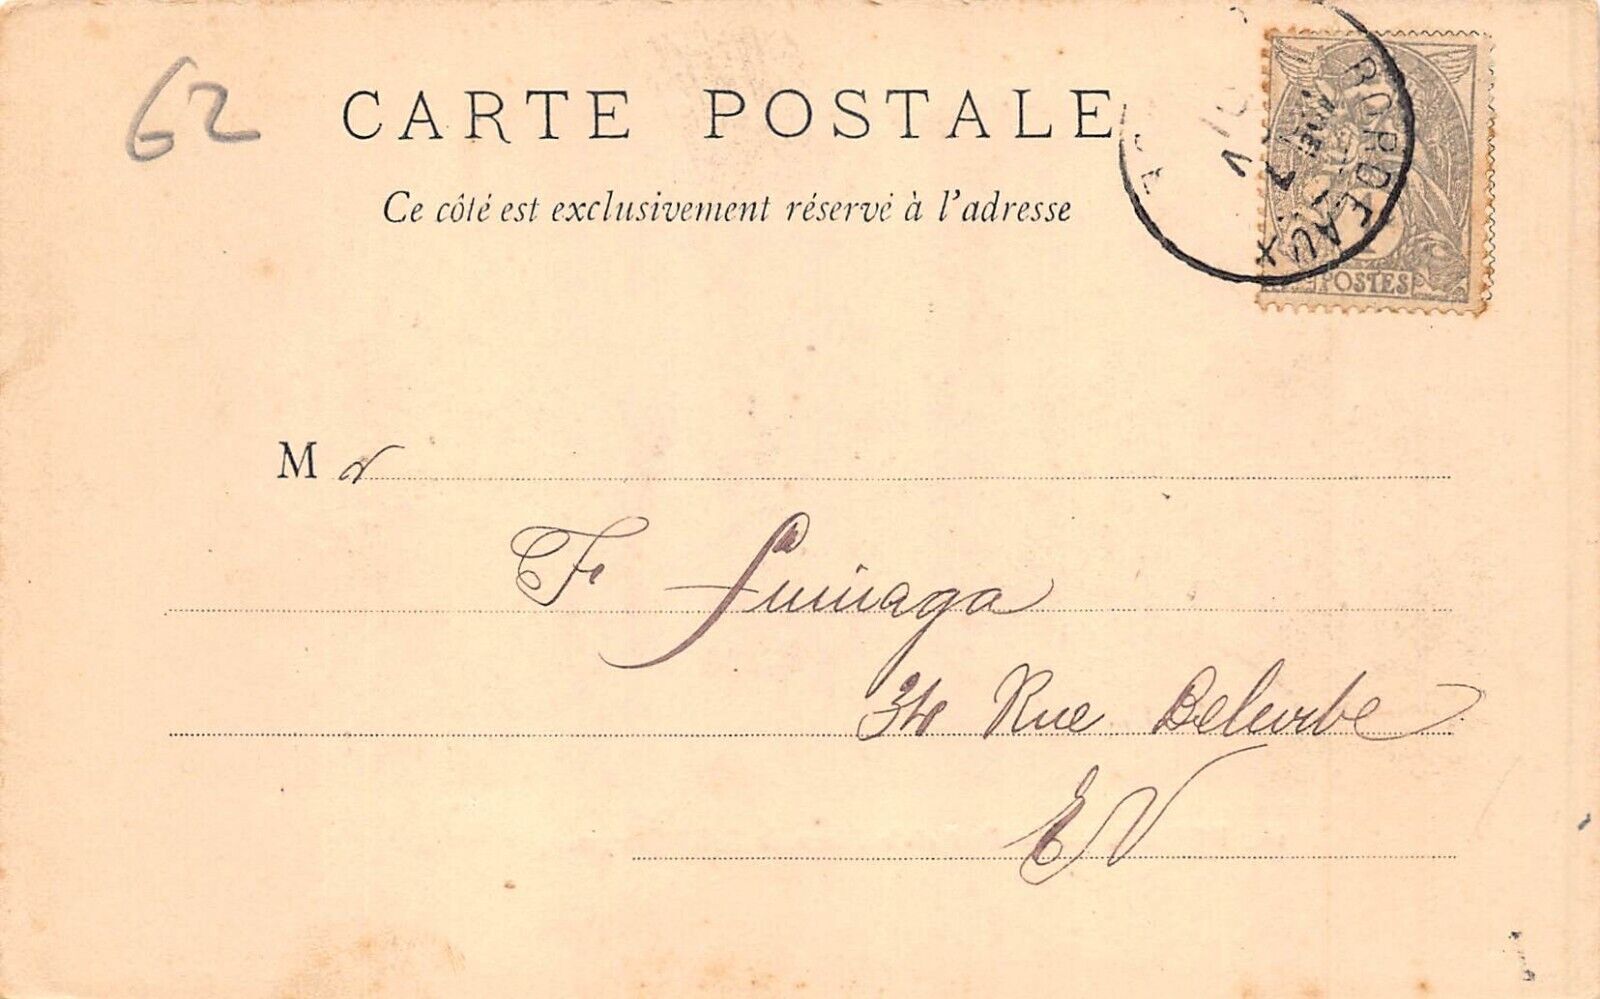 62
CARTE POSTALE
Ce côté est exclusivement réservé à l'adresse
BORDEAUX
POSTES
Mr
F.
34 Rue
EV